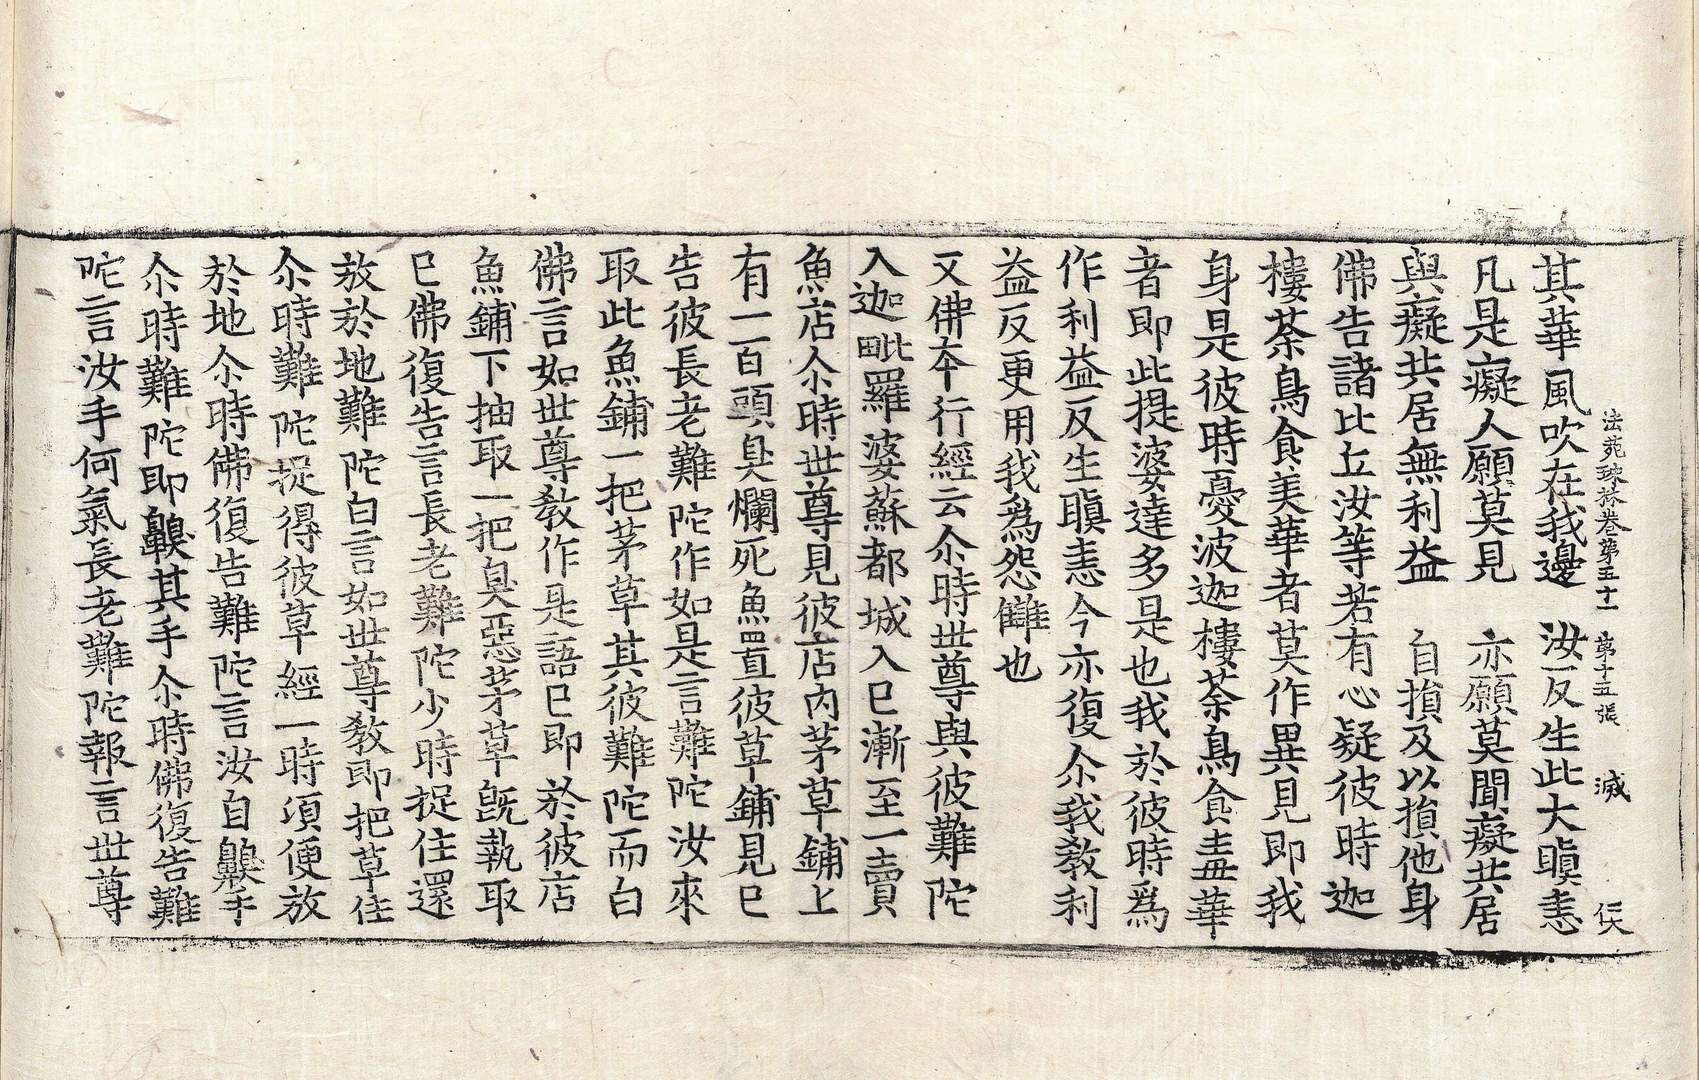 法苑珠林卷第五十一 第十五張 減 㑀
其華風吹在我邊 汝反生此大瞋恚
凡是癡人願莫見 亦願莫聞癡共居
與癡共居無利益 自損及以損他身
佛告諸比丘汝等若有心疑彼時迦
樓荼鳥食美華者莫作異見即我
身是彼時憂波迦樓荼鳥食毒華
者即此提婆達多是也我於彼時爲
作利益反生瞋恚今亦復尒我教利
益反更用我爲怨讎也
又佛夲行經云尒時世尊與彼難陀
入迦毗羅婆蘇都城入巳漸至一賣
魚店尒時世尊見彼店内茅草鋪上
有一百頭臭爛死魚置彼草鋪見巳
告彼長老難陀作如是言難陀汝來
取此魚鋪一把茅草其彼難陀而白
佛言如世尊教作是語巳即於彼店
魚鋪下抽取一把臭惡茅草旣執取
巳佛復告言長老難陀少時捉住還
放於地難陀白言如世尊教即把草住
尒時難陀捉得彼草經一時頃便放
於地尒時佛復告難陀言汝自齅手
尒時難陀即齅其手尒時佛復告難
陀言汝手何氣長老難陀報言世尊